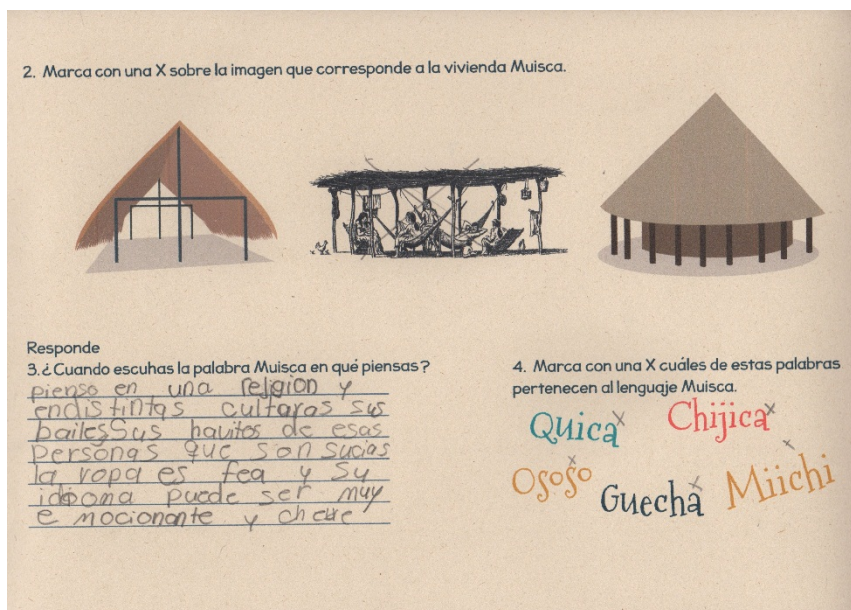 2. Marca con una X sobre la imagen que corresponde a la vivienda Muisca.
Responde
3.¿Cuando escuhas la palabra Muisca en qué piensas?
pienso en una religion y
endistintas cultaras sus
bailessus havitos de esas
personas que son sucias
la ropa es fea y su
idioma puede ser muy
emocionante y chevre
4. Marca con una X cuáles de estas palabras
pertenecen al lenguaje Muisca.
Quica x Chijica x
Ososo x Guecha x Miichi x